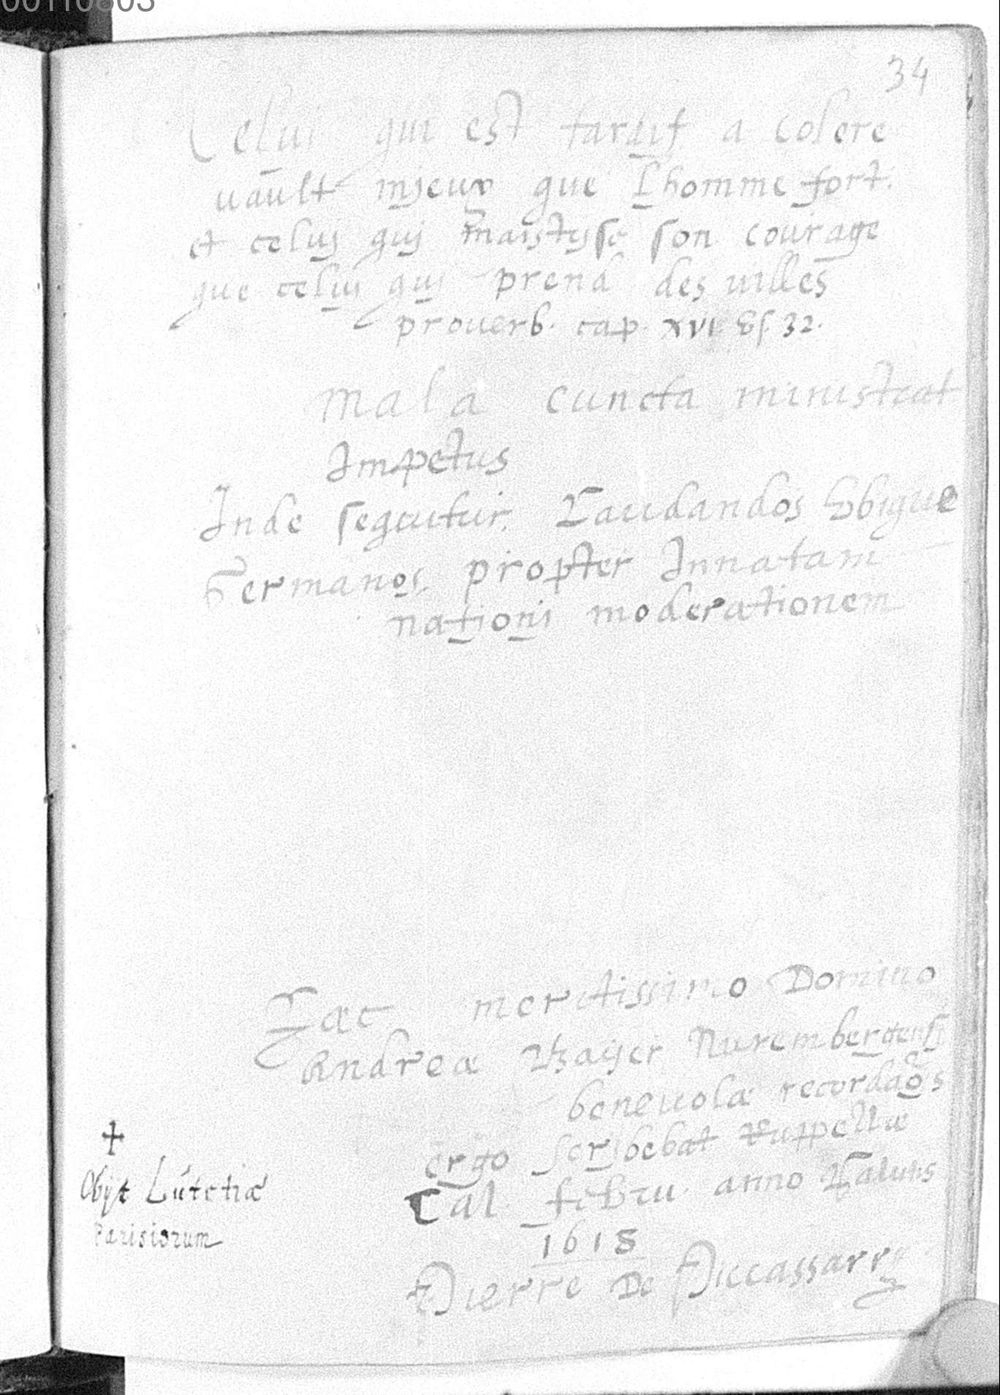 00110803
34
Celui qui est tardif a colere
vault mjeux que Lhomme fort.
et celuj quj maistrise son courage
que celui qui prend des uilles
prouerb. cap. XVI Vs. 32.
Mala cuncta ministrat
Impetus
Inde sequutur. Laudandos Vbique
Germanos propter Innatam
nationi moderationem
Haec meritissimo Domino
Andreæ Bayer Nurembergensi
beneuolæ recordaōs
ergo scribebat Ruppellæ
Cal. febru anno Salutis
1618
Pierre De
✝
Obijt Lutetiæ
Parisiorum